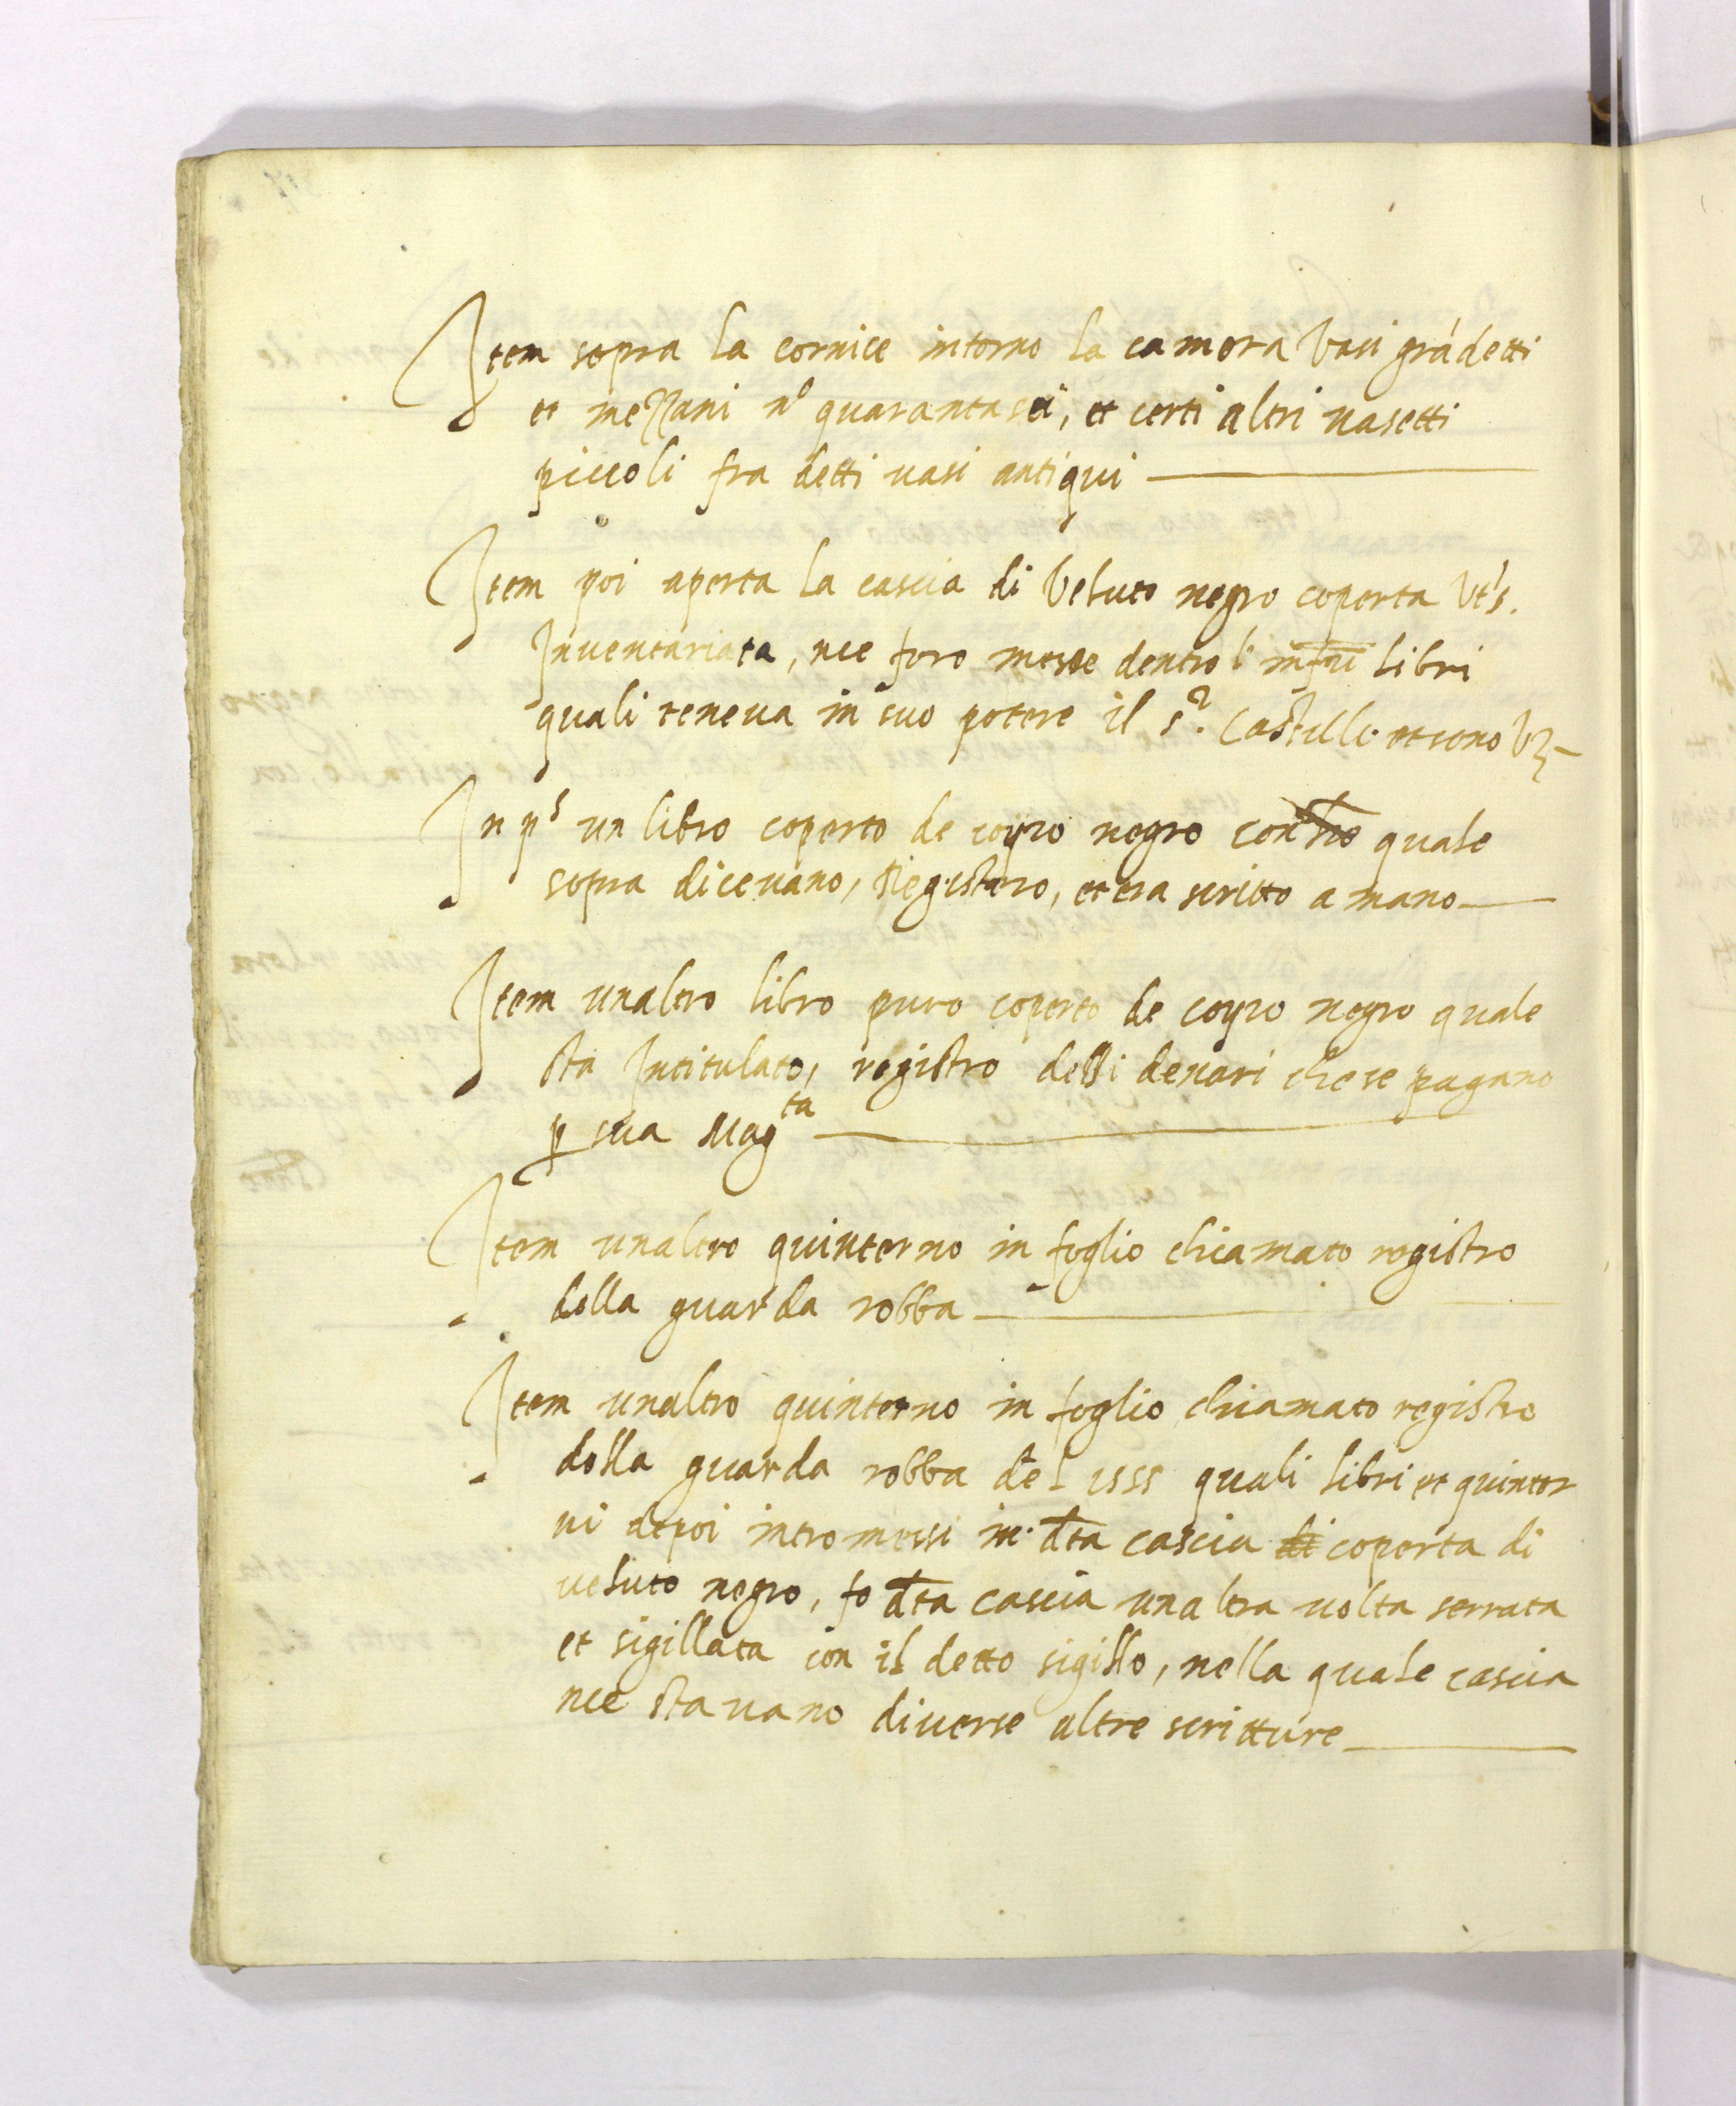 Item sopra la cornice intorno la camera Vasi grádetti
et mezzani n° quarantasei, et certi altri uasetti
piccoli fra detti uasi antiqui
Item poi aperta la cascia di Veluto negro coperta Vt s.
Inuentariata, nce foro messe dentro l' infri libri
quali teneua in suo potere il s.r Castillo et sono Vz
In ps un libro coperto de coyro negro con quale
sopra diceuano, Registro, et era scritto a mano
Item unaltro libro puro coperto de coyro negro quale
sta Intitulato, registro delli denari che se pagano
p sua Mag.ta
Item unaltro quinterno in foglio chiamato registro
della guarda robba
Item unaltro quinterno in foglio chiamato registro
della guarda robba del 1555 quali libri et quinter
ni depoi intromessi in dta cascia di coperta di
ueluto negro, fo dta cascia unaltra uolta serrata
et sigillata con il detto sigillo, nella quale cascia
nce stauano diuerse altre scritture